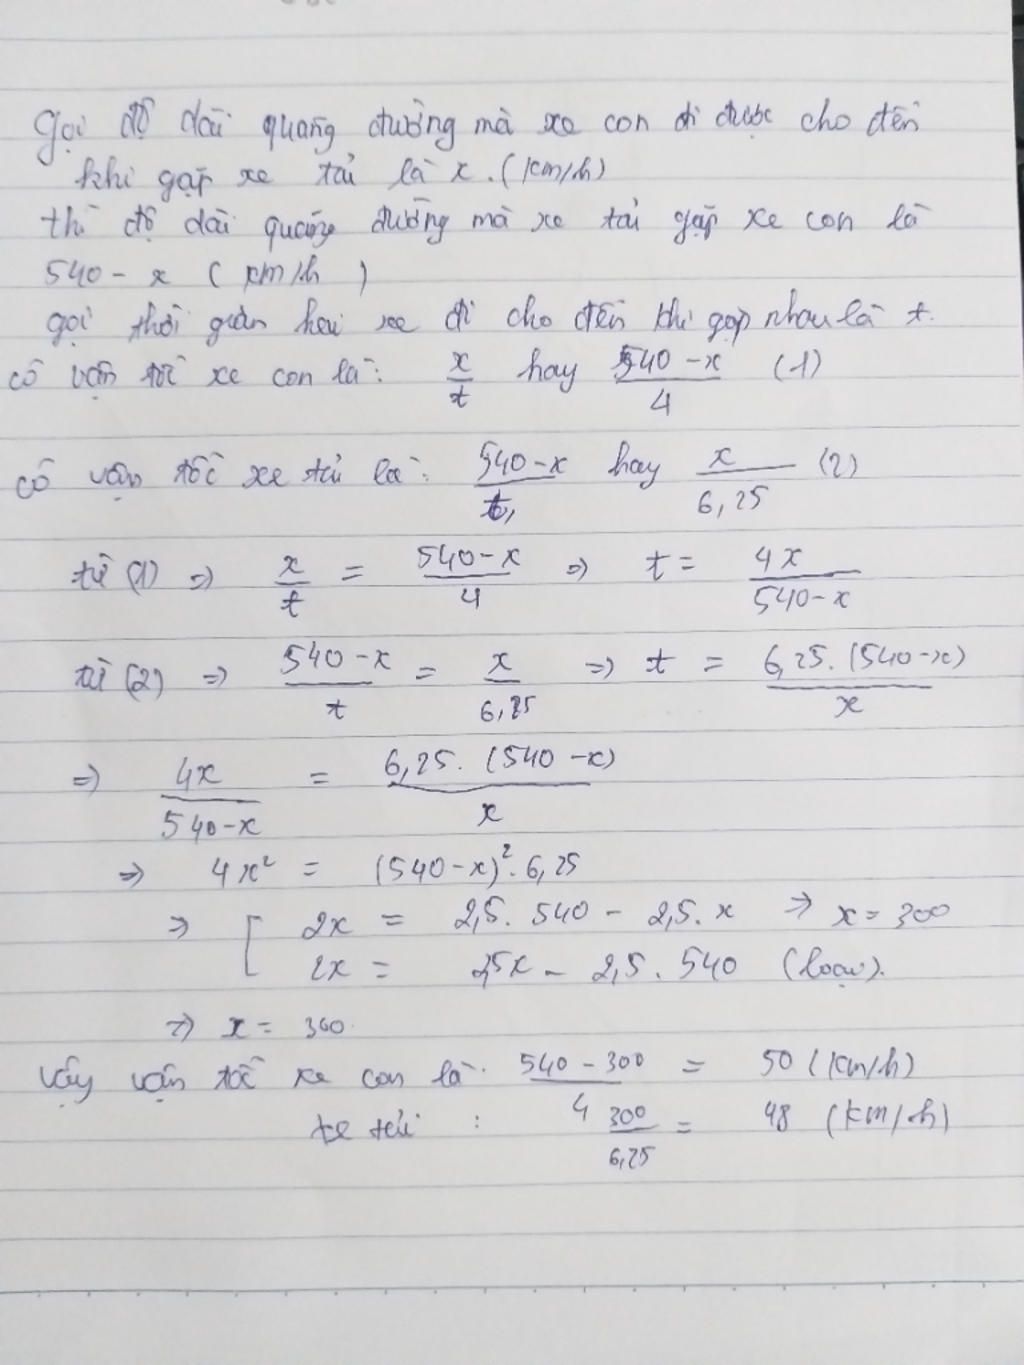 Gọi độ dài quãng đường mà xe con đi được cho đến
khi gặp xe tải là x. (km/h)
thì độ dài quãng đường mà xe tải gặp xe con là
540 - x ( km/h )
gọi thời gian hai xe đi cho đến khi gặp nhau là t.
có vận tốc xe con là: x/t hay 540-x/4 (1)
có vận tốc xe tải là: 540-x/t hay x/6,25 (2)
từ (1) => x/t = 540-x/4 => t = 4x/540-x
từ (2) => 540-x/t = x/6,25 => t = 6,25.(540-x)/x
=> 4x/540-x = 6,25.(540-x)/x
=> 4x² = (540-x)².6,25
=> [ 2x = 2,5.540 - 2,5.x => x = 300
2x = 2,5x - 2,5.540 (loại).
=> x = 300.
Vậy vận tốc xe con là: 540-300/4 = 50 (km/h)
xe tải : 300/6,25 = 48 (km/h)